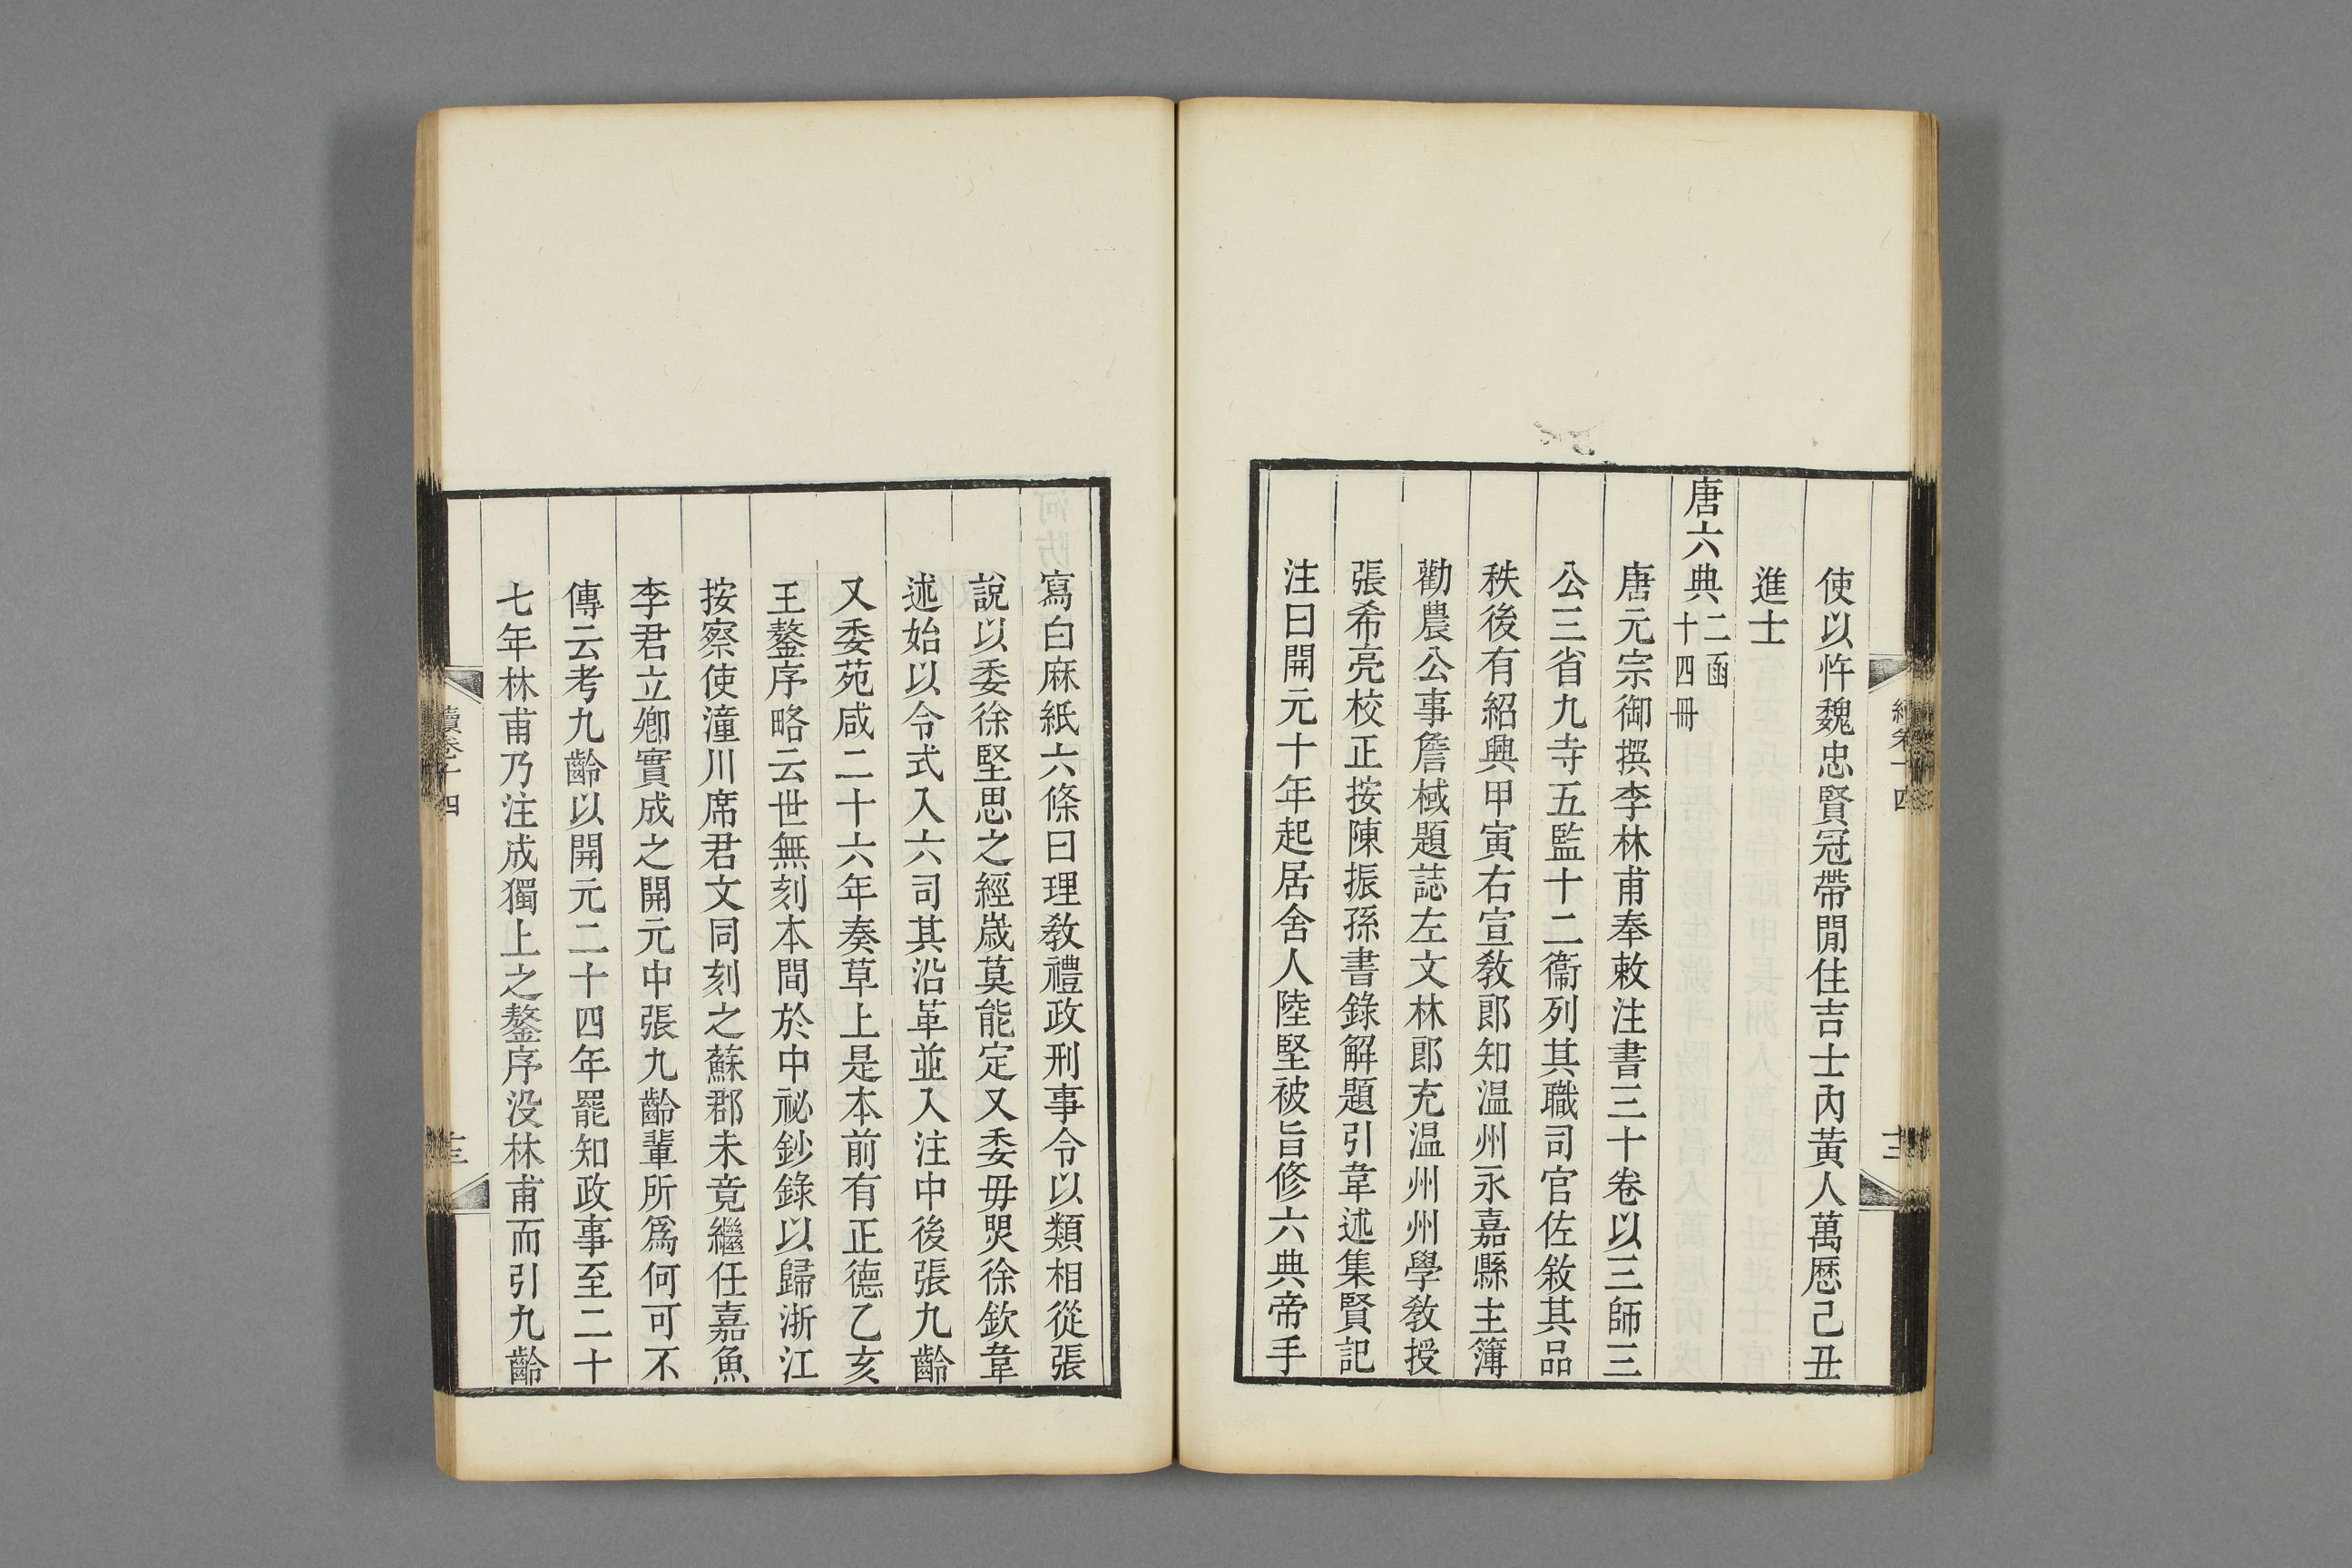 使以忤魏忠賢冠帶閒住吉士內黃人萬厯己丑
進士
唐六典二函十四冊
唐元宗御撰李林甫奉敕注書三十卷以三師三
公三省九寺五監十二衞列其職司官佐敘其品
秩後有紹興甲寅右宣敎郎知温州永嘉縣主簿
勸農公事詹棫題誌左文林郎充温州州學敎授
張希亮校正按陳振孫書錄解題引韋述集賢記
注曰開元十年起居舍人陸堅被旨修六典帝手
寫白麻紙六條曰理敎禮政刑事令以類相從張
說以委徐堅思之經嵗莫能定又委毋煚徐欽韋
述始以令式入六司其沿革並入注中後張九齡
又委苑咸二十六年奏草上是本前有正德乙亥
王鏊序略云世無刻本間於中祕鈔錄以歸浙江
按察使潼川席君文同刻之蘇郡未竟繼任嘉魚
李君立卿實成之開元中張九齡輩所爲何可不
傳云考九齡以開元二十四年罷知政事至二十
七年林甫乃注成獨上之鏊序没林甫而引九齡
續卷十四
十三